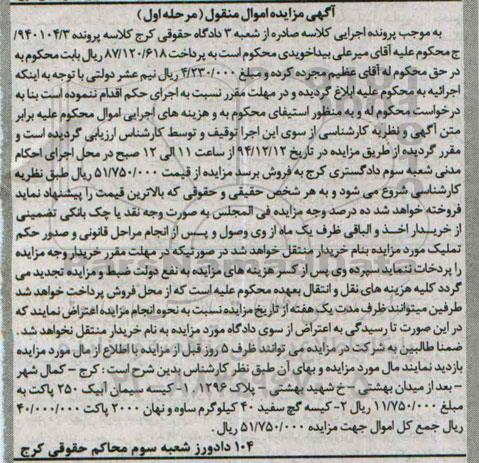 آگهی مزایده اموال منقول (مرحله اول)
به موجب پرونده اجرایی کلاسه صادره از شعبه ۳ دادگاه حقوقی کرج کلاسه پرونده ۹۴۰۱۰۴/۳/
ج محکوم علیه آقای میرعلی بیداخویدی محکوم است به پرداخت ۸۷/۱۲۰/۶۱۸ ریال بابت محکوم به
در حق محکوم له آقای عظیم مجرده کرده و مبلغ ۴/۲۳۰/۰۰۰ ریال نیم عشر دولتی با توجه به اینکه
اجرائیه به محکوم علیه ابلاغ گردیده و در مهلت مقرر نسبت به اجرای حکم اقدام ننموده است بنا به
درخواست محکوم له و به منظور استیفای محکوم به و هزینه های اجرایی اموال محکوم علیه برابر
متن آگهی و نظریه کارشناسی از سوی این اجرا توقیف و توسط کارشناس ارزیابی گردیده است و
مقرر گردیده از طریق مزایده در تاریخ ۹۴/۱۲/۱۲ از ساعت ۱۱ الی ۱۲ صبح در محل اجرای احکام
مدنی شعبه سوم دادگستری کرج به فروش برسد مزایده از قیمت ۵۱/۷۵۰/۰۰۰ ریال طبق نظریه
کارشناسی شروع می شود و به هر شخص حقیقی و حقوقی که بالاترین قیمت را پیشنهاد نماید
فروخته خواهد شد ده درصد وجه مزایده فی المجلس به صورت وجه نقد یا چک بانکی تضمینی
از خریدار اخذ و الباقی ظرف یک ماه از وی وصول و پس از انجام مراحل قانونی و صدور حکم
تملیک مورد مزایده بنام خریدار منتقل خواهد شد در صورتیکه در مهلت مقرر خریدار وجه مزایده
را پرداخت ننماید سپرده وی پس از کسر هزینه های مزایده به نفع دولت ضبط و مزایده تجدید می
گردد کلیه هزینه های نقل و انتقال بعهده محکوم علیه است که از محل فروش پرداخت خواهد شد
طرفین میتوانند ظرف مدت یک هفته از تاریخ مزایده نسبت به نحوه انجام مزایده اعتراض نمایند که
در این صورت تا رسیدگی به اعتراض از سوی دادگاه مورد مزایده به نام خریدار منتقل نخواهد شد .
ضمنا طالبین به شرکت در مزایده می توانند ظرف ۵ روز قبل از مزایده با اطلاع از مال مورد مزایده
بازدید نمایند مال مورد مزایده و بهای آن طبق نظر کارشناس بدین شرح است : کرج – کمال شهر
– بعد از میدان بهشتی – خ شهید بهشتی – پلاک ۱۲۹۶ ، ۱- کیسه سیمان آبیک ۲۵۰ پاکت به
مبلغ ۱۱/۷۵۰/۰۰۰ ریال ۲- کیسه گچ سفید ۴۰ کیلوگرم ساوه و نهان ۲۰۰۰ پاکت ۴۰/۰۰۰/۰۰۰
ریال جمع کل اموال جهت مزایده ۵۱/۷۵۰/۰۰۰ ریال .
۱۰۴ دادورز شعبه سوم محاکم حقوقی کرج